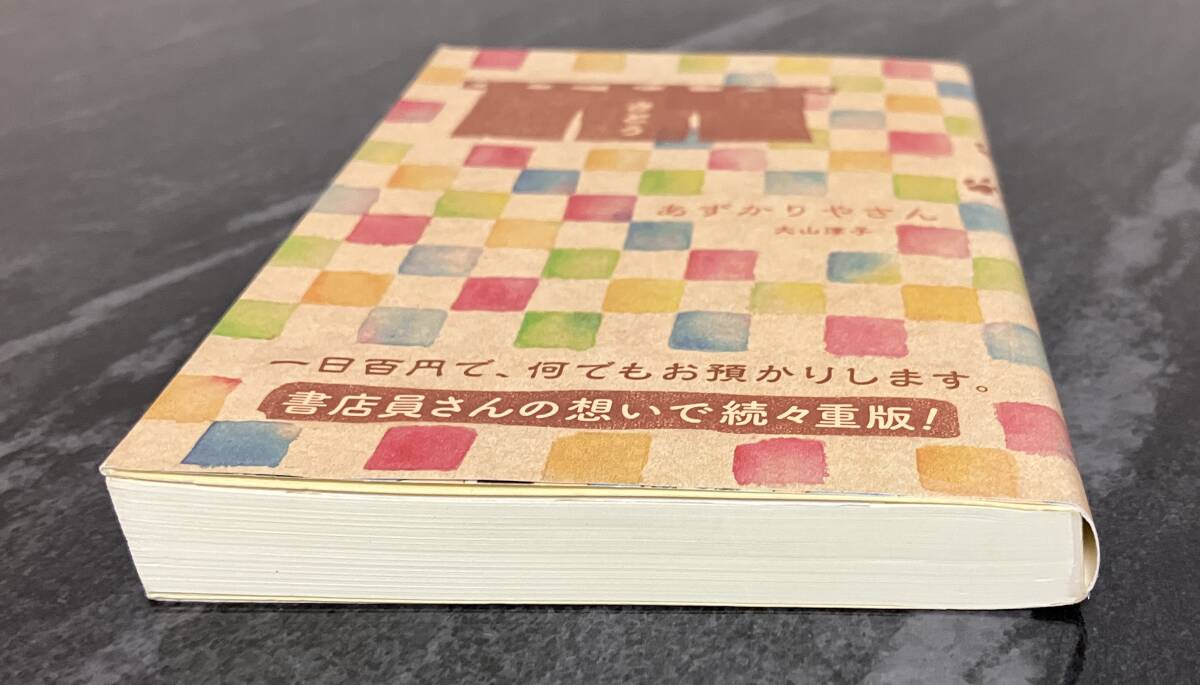 さとう
あずかりやさん
大山淳子
一日百円で、何でもお預かりします。
書店員さんの想いで続々重版!